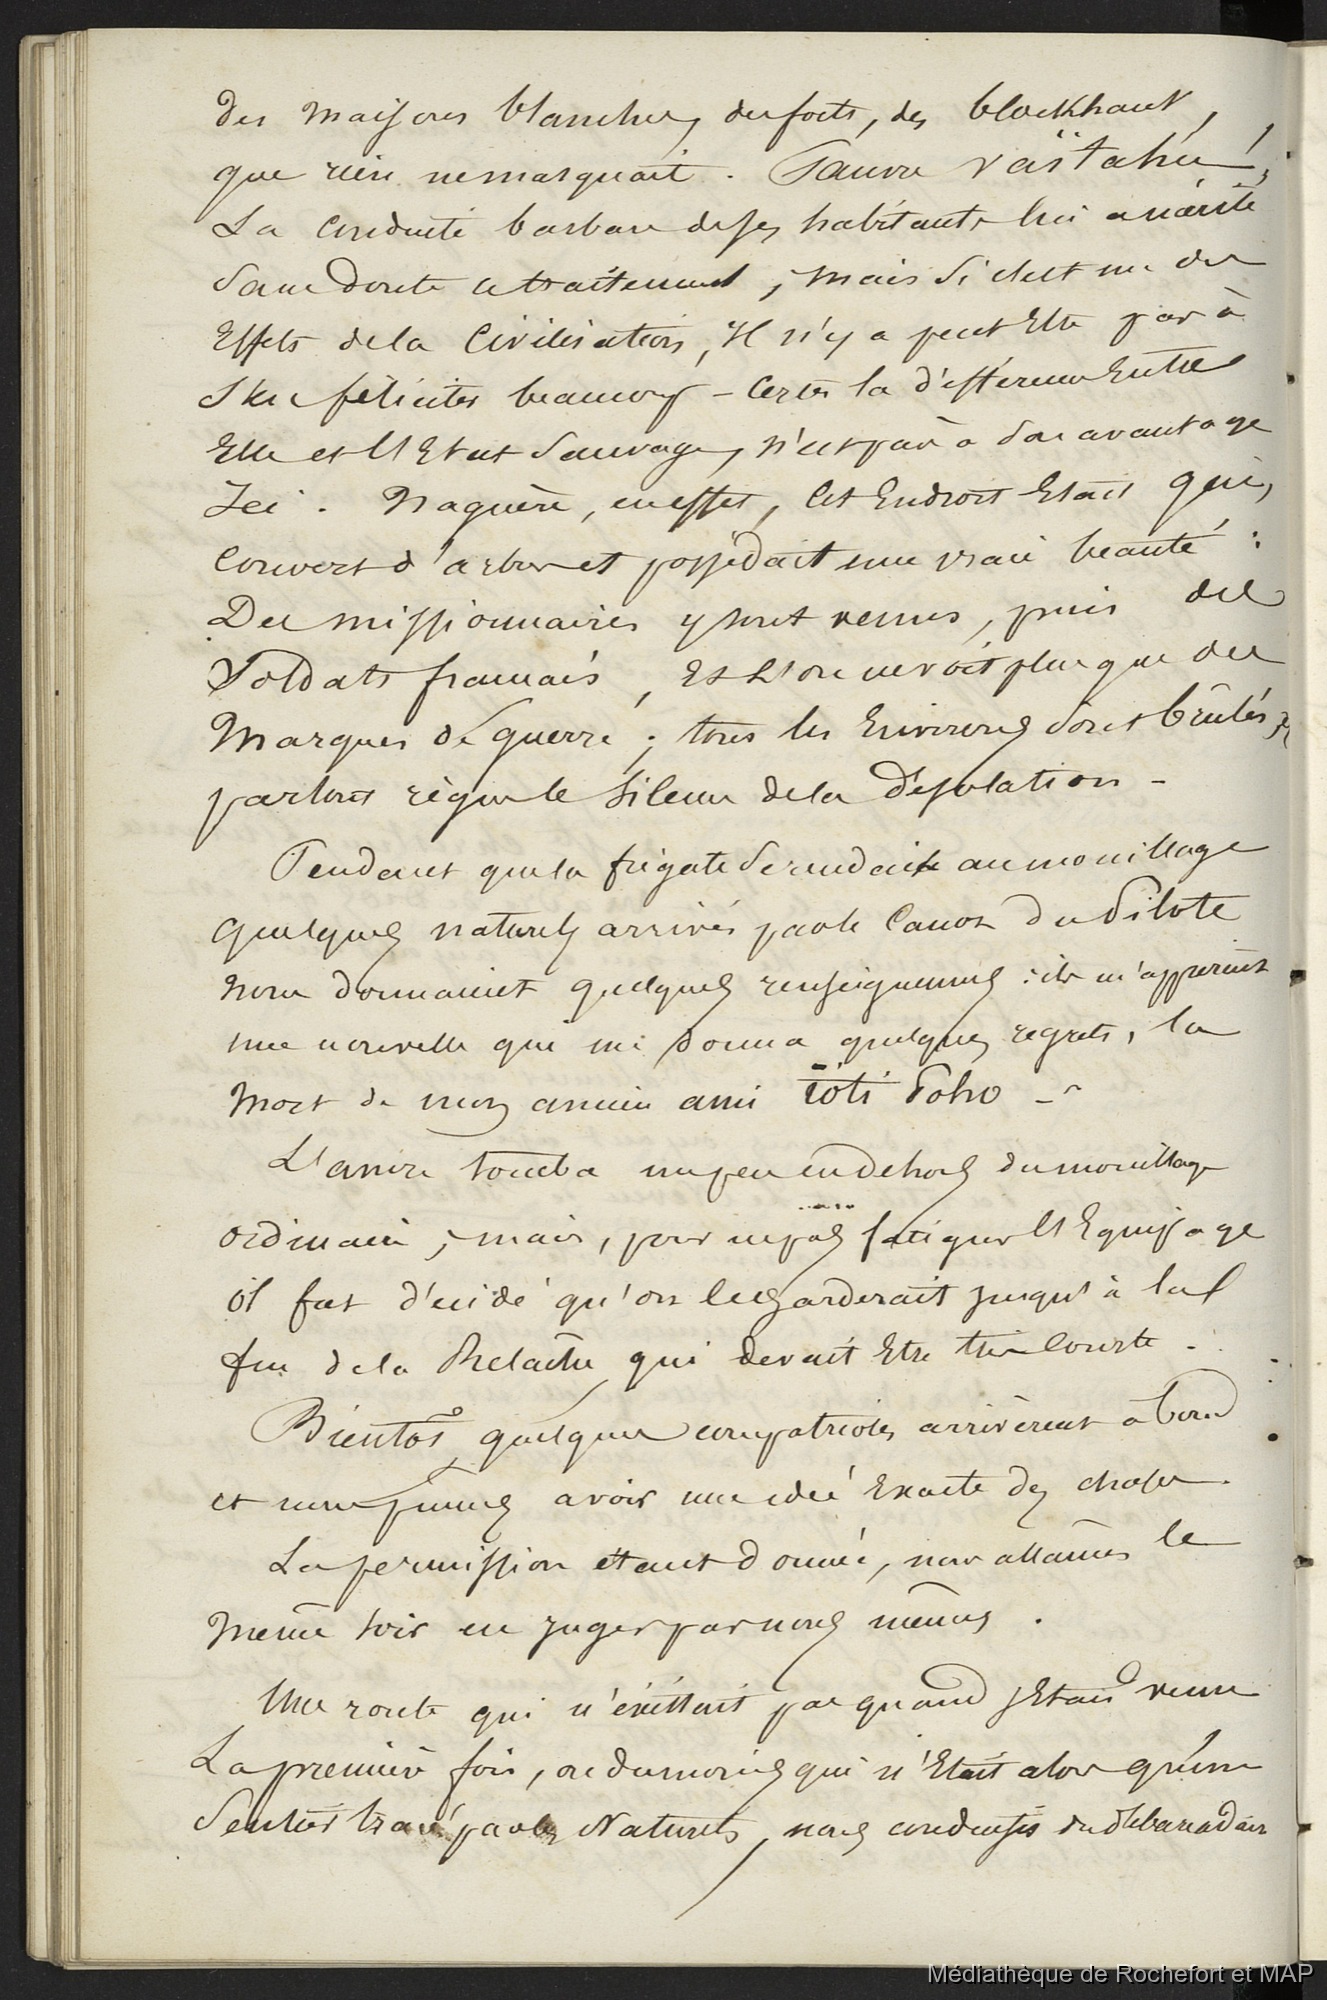 des maisons blanches, des forts, des blockhaus,
que rien ne masquait. Pauvre Vaïtahu !
La conduite barbare de ses habitants lui a mérité
sans doute ce traitement ; mais si c'est un des
Effets de la Civilisation, Il n'y a peut Etre pas à
s'en féliciter beaucoup – Certes la différence Entre
Elle et l'Etat Sauvage, n'est pas à son avantage
Ici. Naguère, en effet, Cet Endroit Etait gai,
Couvert d'arbres et possédait une vraie beauté :
Des missionnaires y sont venus, puis des
Soldats français, Et L'on ne voit plus que des
Marques de guerre ; tous les Environs sont brûlés, et
partout règne le Silence de la Désolation –
Pendant que la frégate se rendait au mouillage
quelques naturels arrivés par le Canot du Pilote
nous donnaient quelques renseignements : ils m'apprirent
une nouvelle qui me donna quelques regrets, la
Mort de mon ancien ami Toti Poho –
L'ancre tomba un peu en dehors du mouillage
ordinaire ; mais, pour ne pas fatiguer l'Equipage
il fut décidé qu'on le garderait jusqu'à la
fin de la Relâche qui devait Etre très Courte.
Bientôt quelques compatriotes arrivèrent à bord
et nous pûmes avoir une idée Exacte des choses.
La permission étant donnée, nous allâmes le
même soir en juger par nous mêmes.
Une route qui n'éxistait pas quand j'Etais venu
La première fois, ou du moins qui n'Etait alors qu'un
Sentier tracé par les Naturels, nous conduisit du débarcadère
Médiathèque de Rochefort et MAP